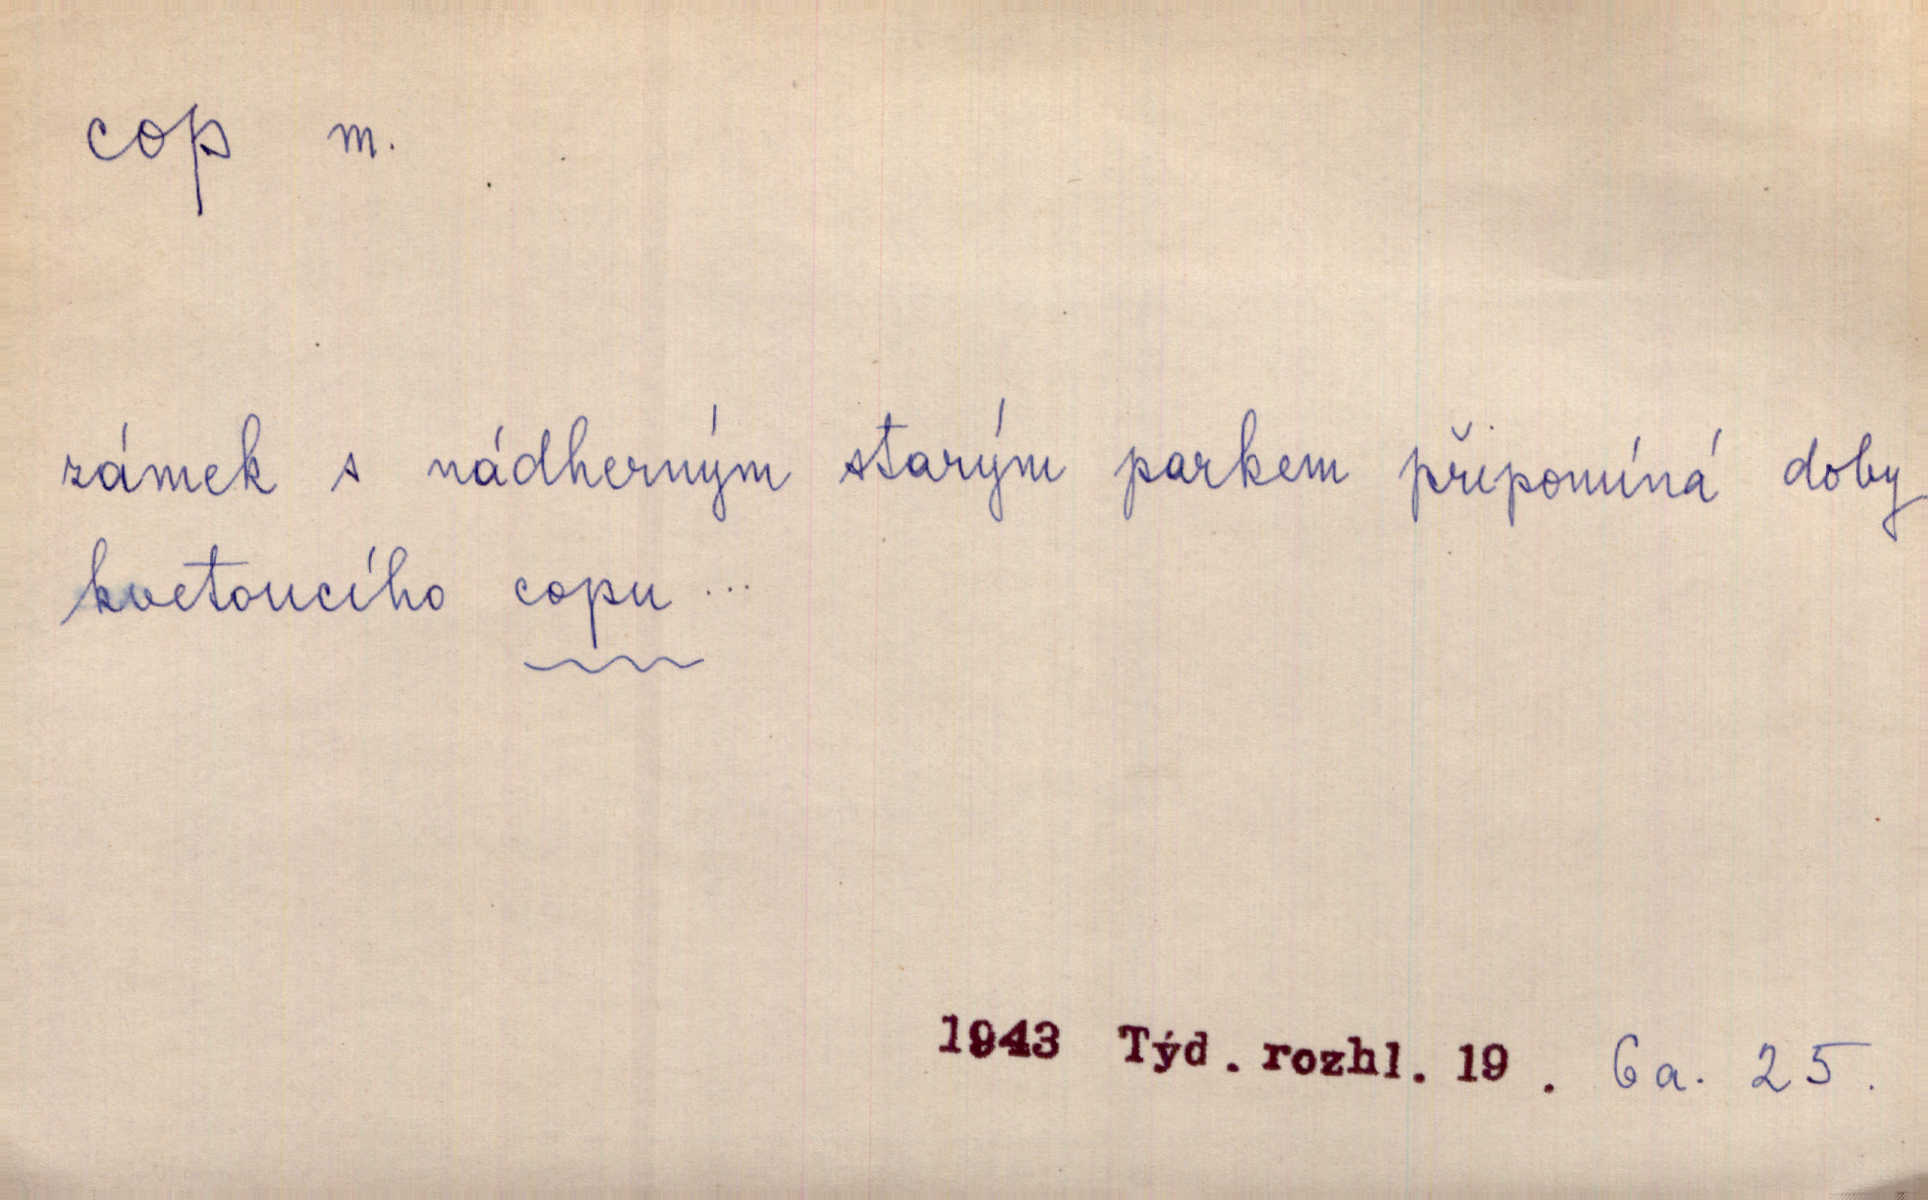 cop m.
zámek s nádherným starým parkem připomíná doby
kvetoucího copu ...
1943 Týd. rozhl. 19. 6a. 25.